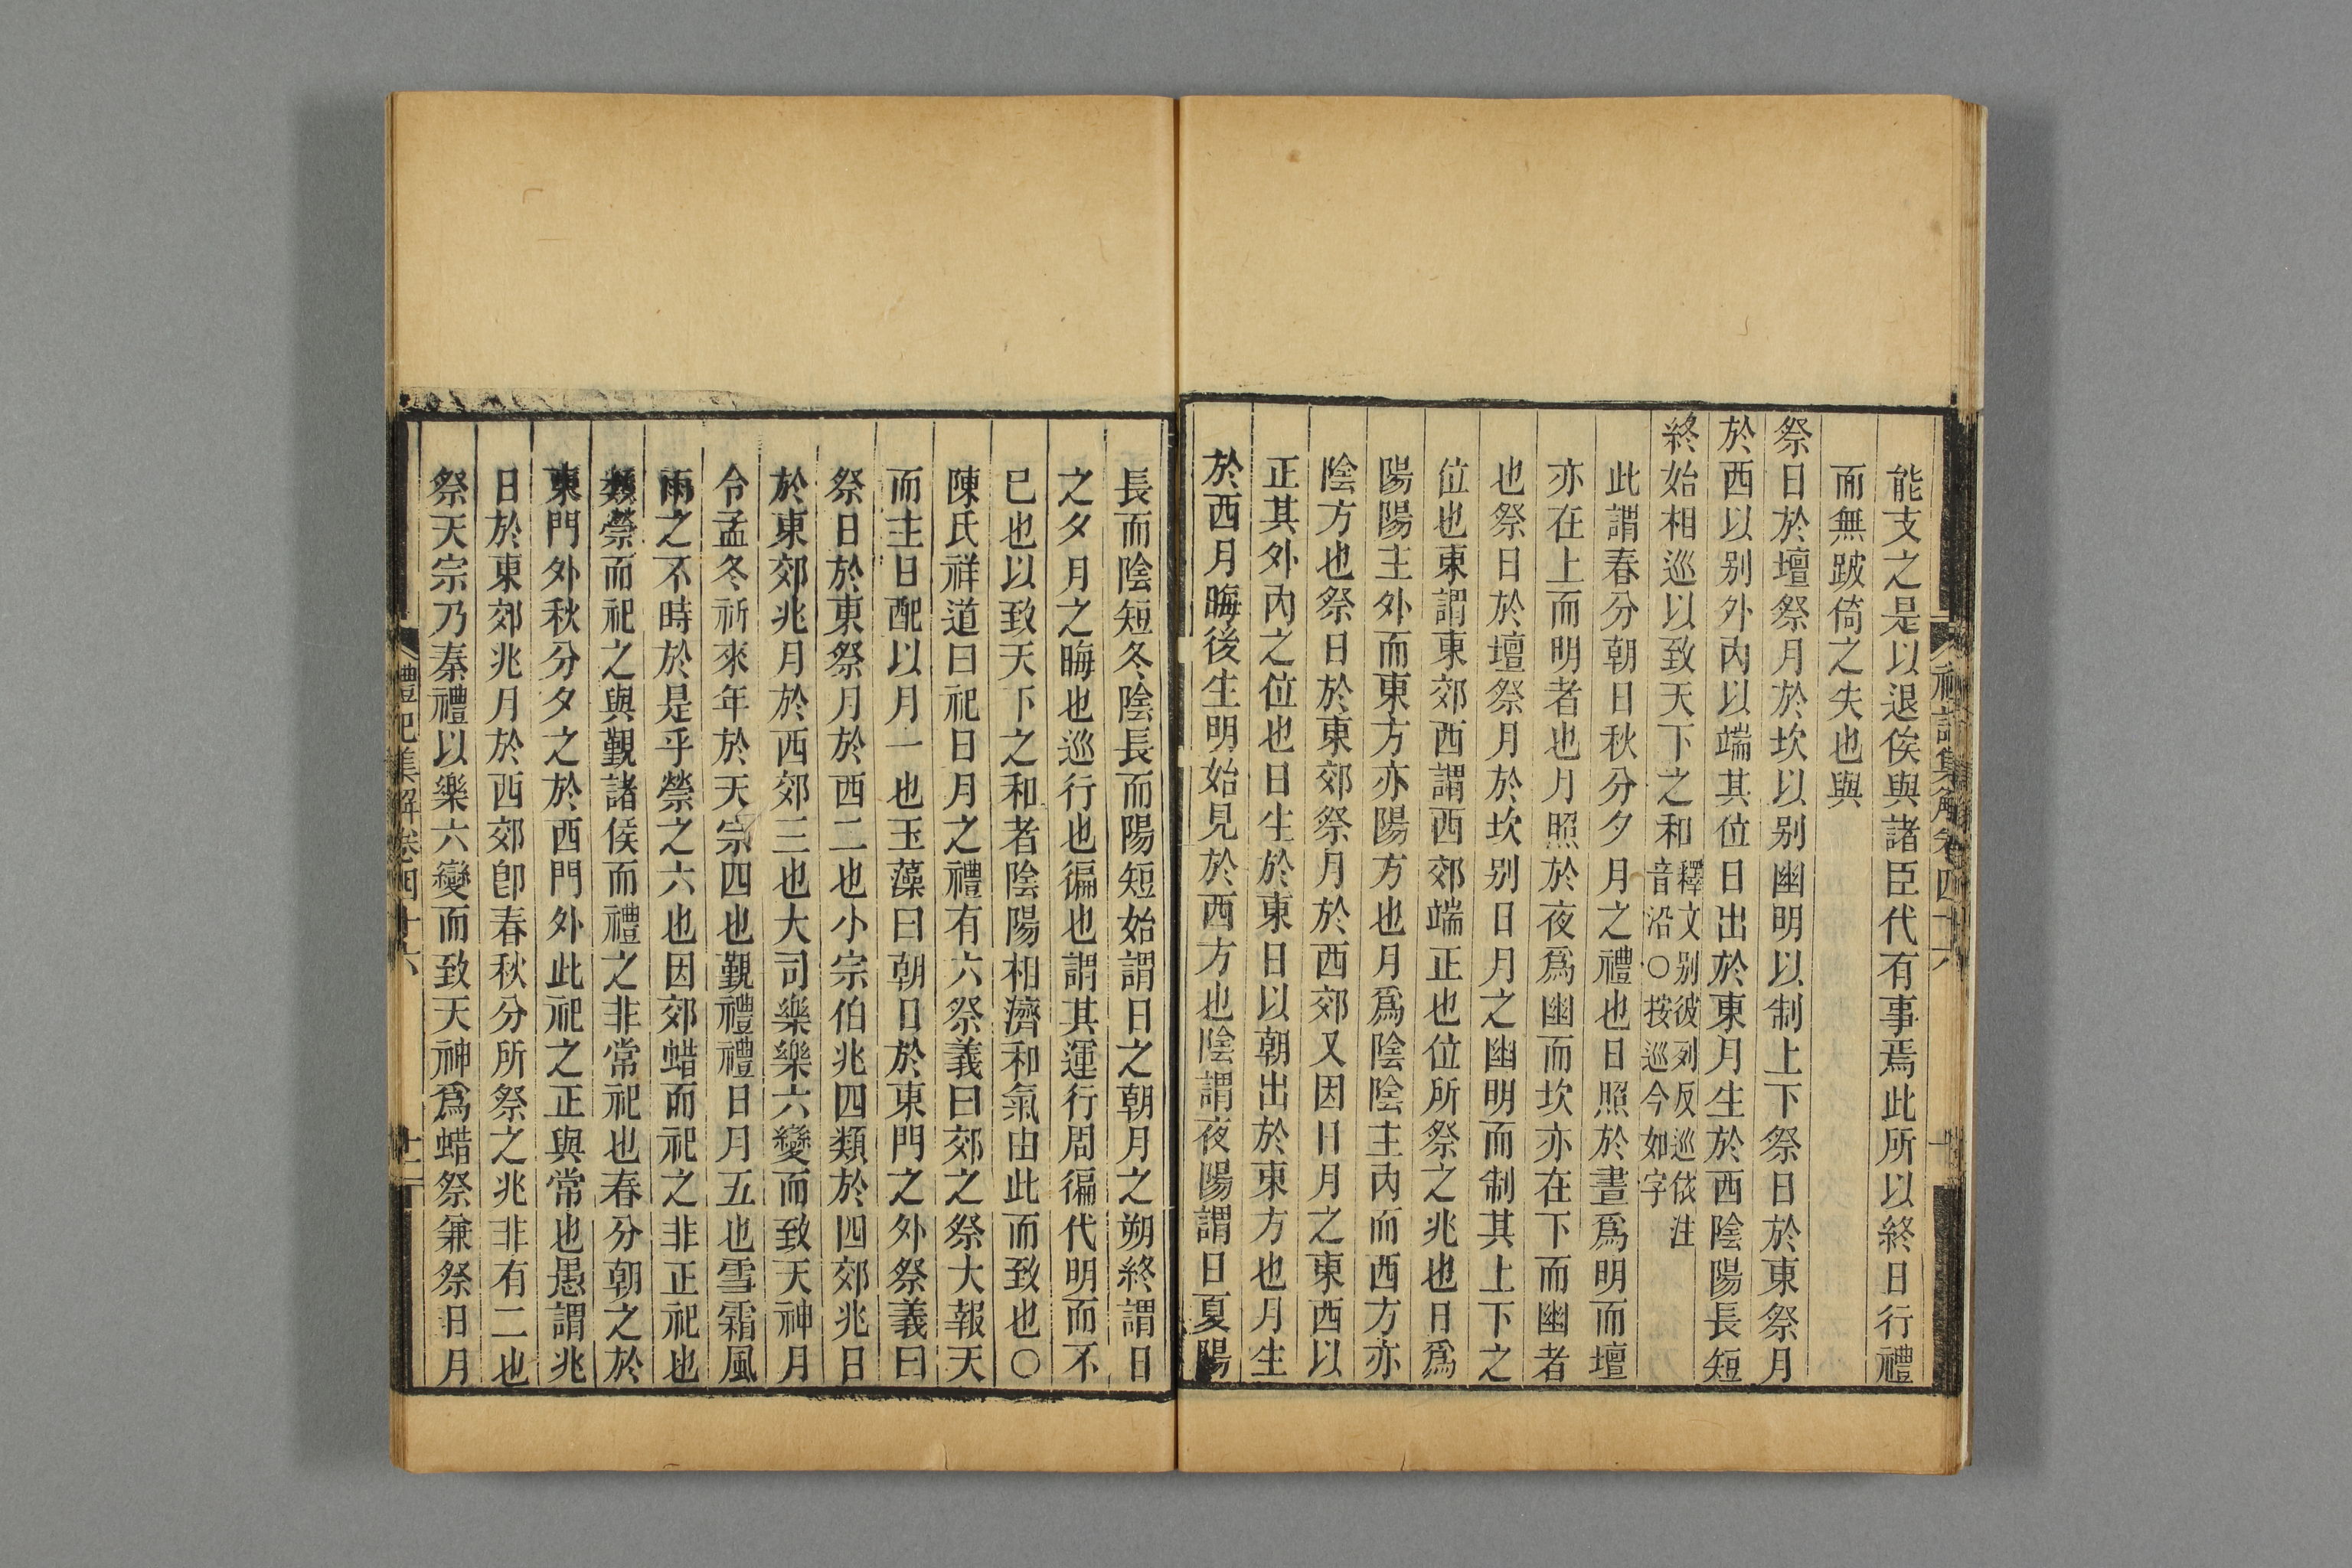 能支之是以退俟與諸臣代有事焉此所以終日行禮
而無跛倚之失也與
祭日於壇祭月於坎以别幽明以制上下祭日於東祭月
於西以别外內以端其位日出於東月生於西陰陽長短
終始相巡以致天下之和釋文别彼列反巡依注
音沿○按巡今如字
此謂春分朝日秋分夕月之禮也日照於晝爲明而壇
亦在上而明者也月照於夜爲幽而坎亦在下而幽者
也祭日於壇祭月於坎别日月之幽明而制其上下之
位也東謂東郊西謂西郊端正也位所祭之兆也日爲
陽陽主外而東方亦陽方也月爲陰陰主內而西方亦
陰方也祭日於東郊祭月於西郊又因日月之東西以
正其外內之位也日生於東日以朝出於東方也月生
於西月晦後生明始見於西方也陰謂夜陽謂日夏陽
長而陰短冬陰長而陽短始謂日之朝月之朔終謂日
之夕月之晦也巡行也徧也謂其運行周徧代明而不
已也以致天下之和者陰陽相濟和氣由此而致也○
陳氏祥道曰祀日月之禮有六祭義曰郊之祭大報天
而主日配以月一也玉藻曰朝日於東門之外祭義曰
祭日於東祭月於西二也小宗伯兆四類於四郊兆日
於東郊兆月於西郊三也大司樂樂六變而致天神月
令孟冬祈來年於天宗四也覲禮禮日月五也雪霜風
雨之不時於是乎禜之六也因郊蜡而祀之非正祀也
類禜而祀之與覲諸侯而禮之非常祀也春分朝之於
東門外秋分夕之於西門外此祀之正與常也愚謂兆
日於東郊兆月於西郊卽春秋分所祭之兆非有二也
祭天宗乃秦禮以樂六變而致天神爲蜡祭兼祭日月
禮記集解卷四十六
十二